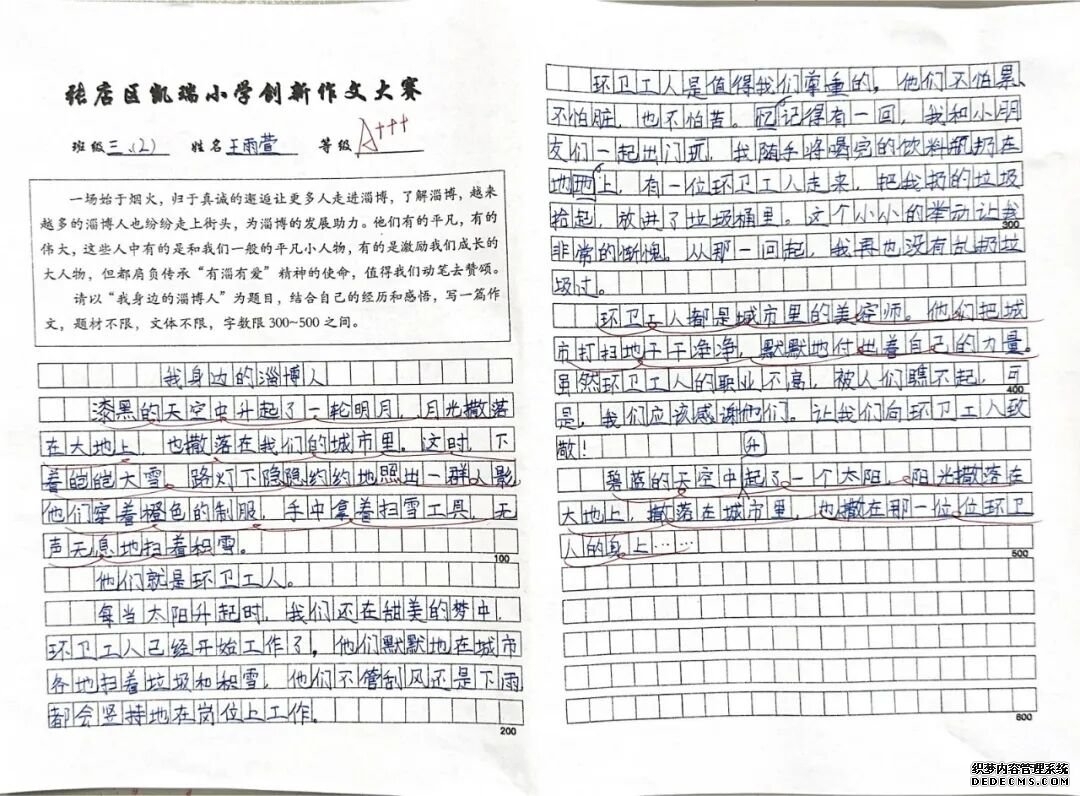 张店区凯瑞小学创新作文大赛
班级三.(2) 姓名王雨萱 等级A+++
一场始于烟火，归于真诚的邂逅让更多人走进淄博，了解淄博，越来
越多的淄博人也纷纷走上街头，为淄博的发展助力。他们有的平凡，有的
伟大，这些人中有的是和我们一般的平凡小人物，有的是激励我们成长的
大人物，但都肩负传承“有淄有爱”精神的使命，值得我们动笔去赞颂。
请以“我身边的淄博人”为题目，结合自己的经历和感悟，写一篇作
文，题材不限，文体不限，字数限300~500之间。
我身边的淄博人
漆黑的天空中升起了一轮明月，月光撒落
在大地上，也撒落在我们的城市里。这时，下
着皑皑大雪。路灯下隐隐约约地照出一群人影，
他们穿着橙色的制服，手中拿着扫雪工具，无
声无息地扫着积雪。
100
他们就是环卫工人。
每当太阳升起时，我们还在甜美的梦中，
环卫工人已经开始工作了，他们默默地在城市
各地扫着垃圾和积雪，他们不管刮风还是下雨
都会坚持地在岗位上工作。
200
环卫工人是值得我们尊重的，他们不怕累、
不怕脏，也不怕苦。忆记得有一回，我和小朋
友们一起出门玩，我随手将喝完的饮料瓶扔在
地地上，有一位环卫工人走来，把我扔的垃圾
拾起，放进了垃圾桶里。这个小小的举动让我
300
非常的惭愧。从那一回起，我再也没有乱扔垃
圾过。
环卫工人都是城市里的美容师。他们把城
市打扫地干干净净，默默地付出着自己的力量。
虽然环卫工人的职业不高，被人们瞧不起，可
400
是，我们应该感谢他们。让我们向环卫工人致
敬！
升
碧蓝的天空中起了一个太阳，阳光撒落在
大地上，撒落在城市里，也撒在那一位位环卫
人的身上……
500
600
织梦内容管理系统
DEDECMS.COM